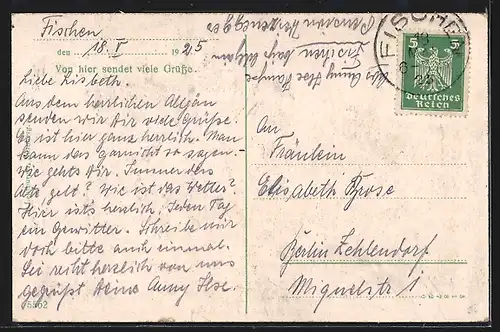 Fischen
den 18. V 1925
Von hier sendet viele Grüße.
Liebe Lisbeth.
Aus dem herrlichen Allgäu
senden wir Dir viele Grüße.
Es ist hier ganz herrlich. Man
kann das garnicht so sagen.
Wie gehts Dir. Immer das
alte gelt? Wie ist das Wetter?
Hier ists herrlich, jeden Tag
ein Gewitter. Schreibe mir
doch bitte auch einmal.
Sei recht herzlich von uns
gegrüßt Deine Anny Ilse.
75562
Anny Ilse
Fischen bayr. Allgäu
Pension
FISCHEN
5 5
Deutsches
Reich
An
Fräulein
Elisabeth Brose
Berlin Zehlendorf
Miquelstr 1